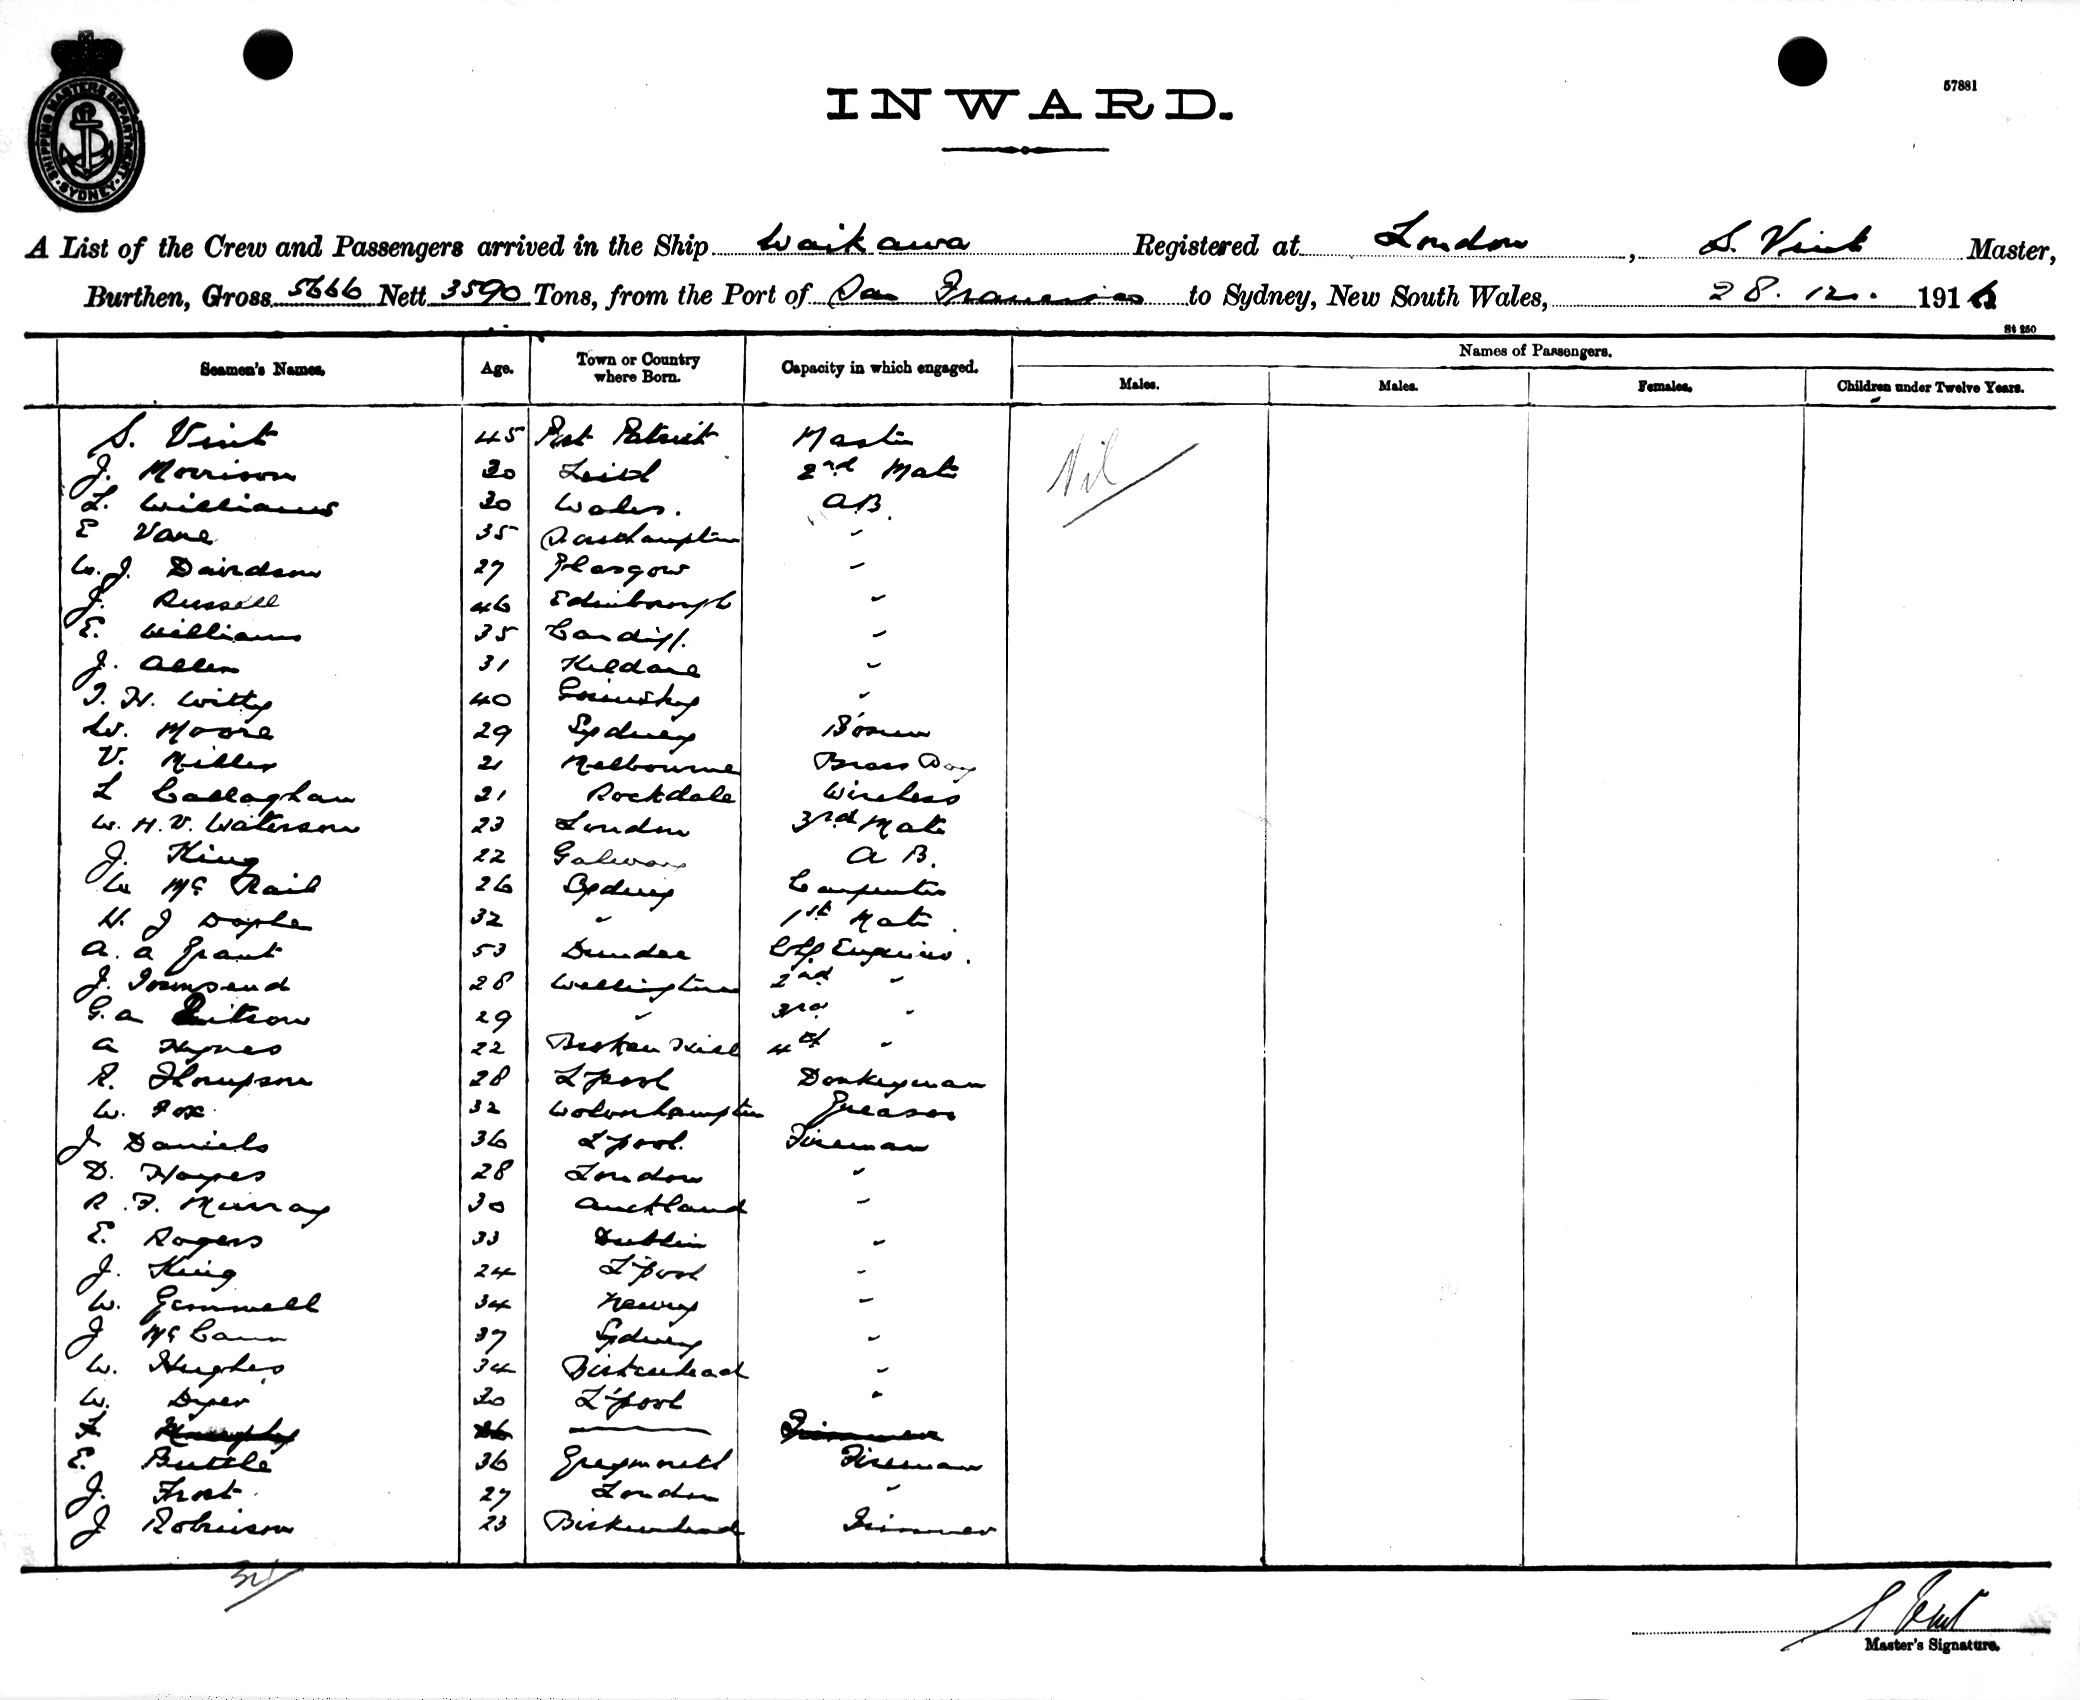 SHIPPING MASTERS DEPARTMENT SYDNEY
57881
INWARD.
A List of the Crew and Passengers arrived in the Ship Waikawa Registered at London, S. Vint Master,
Burthen, Gross 5666 Nett 3590 Tons, from the Port of San Francisco to Sydney, New South Wales, 28. 12. 1916
St 250
Seamen's Names. Age. Town or Country where Born. Capacity in which engaged. Names of Passengers.
Males. Males. Females. Children under Twelve Years.
S. Vint 45 Port Patrick Master Nil
J. Morrison 30 Leith 2nd Mate
L. Williams 30 Wales. AB.
E Vane 35 "
W. J. Davidson 27 Glasgow "
J. Russell 46 Edinborough "
E. Williams 35 Cardiff. "
J. Allen 31 Kildare "
T. H. Witty 40 "
W. Moore 29 Sydney Bosun
V. Miller 21 Melbourne Brass Boy
L Callaghan 21 Rockdale Wireless
W. H. V. Waterson 23 London 3rd Mate
J. King 22 Galway A B.
W Mc 26 Sydney Carpenter
H. J 32 " 1st Mate.
A. A Grant 53 Dundee Engineer.
J. Townsend 28 Wellington 2nd "
G. A 29 " 3rd "
A Hynes 22 Broken Hill 4th "
R. Thompson 28 L'pool Donkeyman
W. Fox. 32 Wolverhampton Greaser
J Daniels 36 L'pool. Fireman
D. Hayes 28 London "
R. F. Murray 30 Auckland "
E. Rogers 33 Dublin "
J. King 24 L'pool "
W. Gemmell 34 Newry "
J McCann 37 Sydney "
W. Hughes 34 Birkenhead "
W. Dyer 30 L'pool "
Murphy 26 Trimmer
E. Buttle 36 Greymouth Fireman
J. Frost 27 London "
J Robinson 23 Birkenhead Trimmer
34
S Vint
Master's Signature.